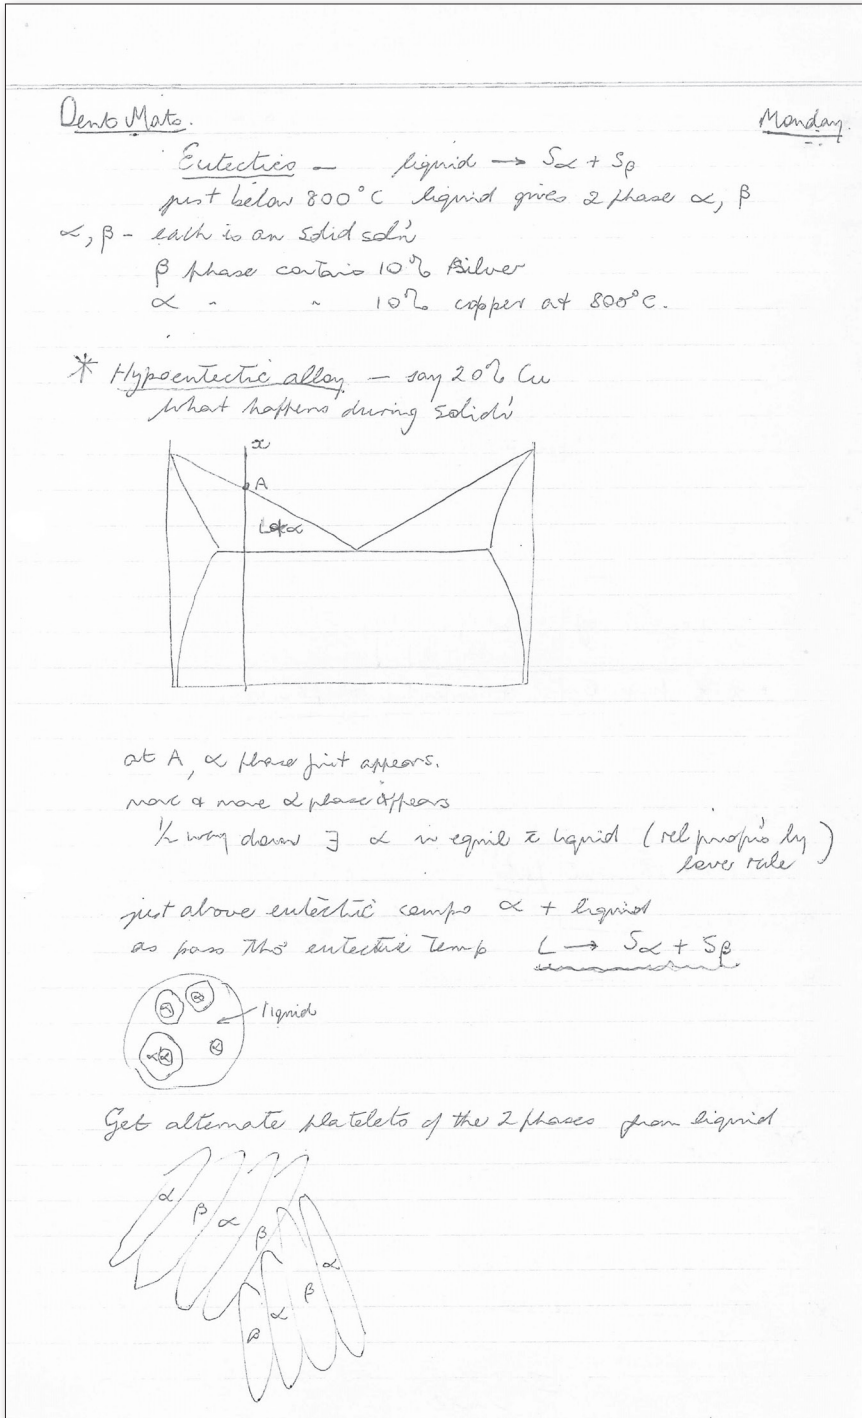 Dent Mats. Monday.
Eutectics — liquid → Sα + Sβ
just below 800°C liquid gives 2 phase α, β
α, β – each is an solid sol'n
β phase contains 10% Silver
α " " 10% copper at 800°C.
* Hypoeutectic alloy — say 20% Cu
What happens during solid'n
x
A
L+α
at A, α phase first appears.
more & more α phase appears
½ way down ∃ α in equil c̄ liquid (rel prop'ns by lever rule)
just above eutectic compo α + liquid
as pass thro' eutectic temp L → Sα + Sβ
α α
liquid
α α α
Get alternate platelets of the 2 phases from liquid
α β α β
β α β α